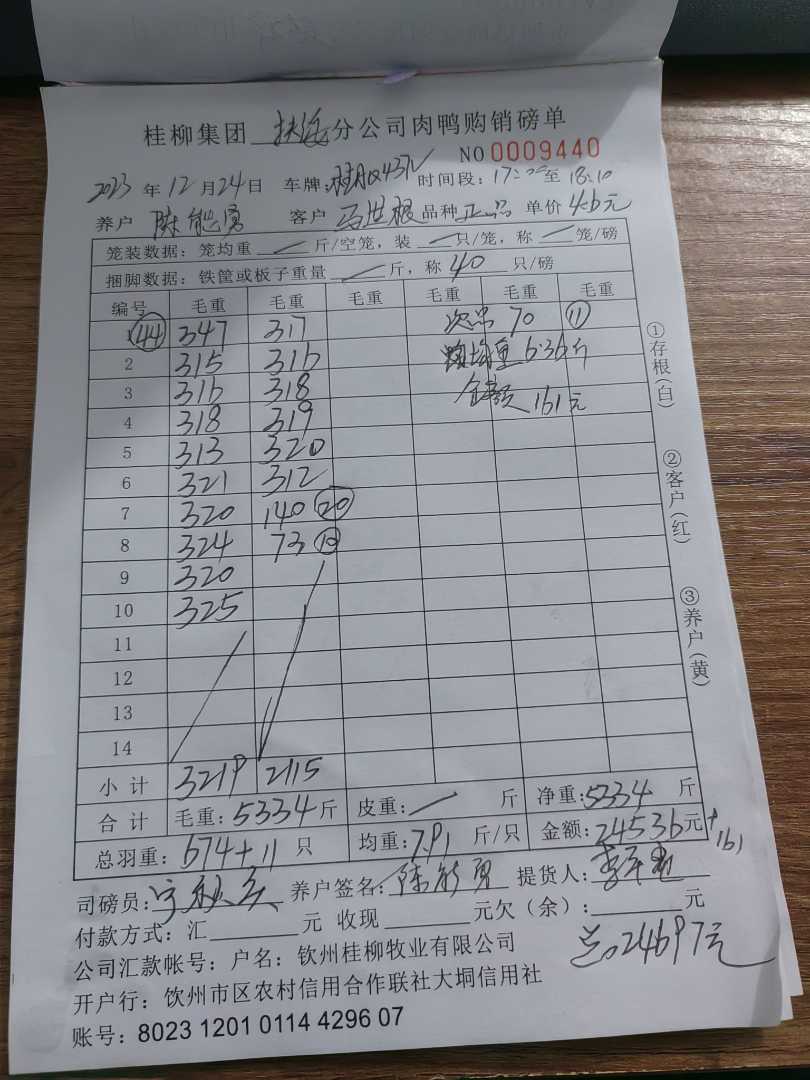 桂柳集团 扶绥 分公司肉鸭购销磅单
NO 0009440
2023 年 12 月 24 日 车牌: 时间段: 17: 至 18:10
养户 陈能勇 客户 品种 正品 单价 4.6元
笼装数据: 笼均重 斤/空笼, 装 只/笼, 称 笼/磅
捆脚数据: 铁筐或板子重量 斤, 称 40 只/磅
编号 毛重 毛重 毛重 毛重 毛重 毛重
44 347 317 次品 70 11
2 315 316 均重 6.36斤
3 316 318 金额 161元
4 318 319
5 313 320
6 321 312
7 320 140 20
8 324 73 10
9 320
10 325
11
12
13
14
小计 3219 2115
合计 毛重: 5334 斤 皮重: 斤 净重: 5334 斤
总羽重: 674+11 只 均重: 7.91 斤/只 金额: 24536 元 +161
司磅员: 养户签名: 陈能勇 提货人:
付款方式: 汇 元 收现 元欠(余): 元
公司汇款帐号: 户名: 钦州桂柳牧业有限公司
总24697元
开户行: 钦州市区农村信用合作联社大垌信用社
账号: 8023 1201 0114 4296 07
①存根(白)
②客户(红)
③养户(黄)